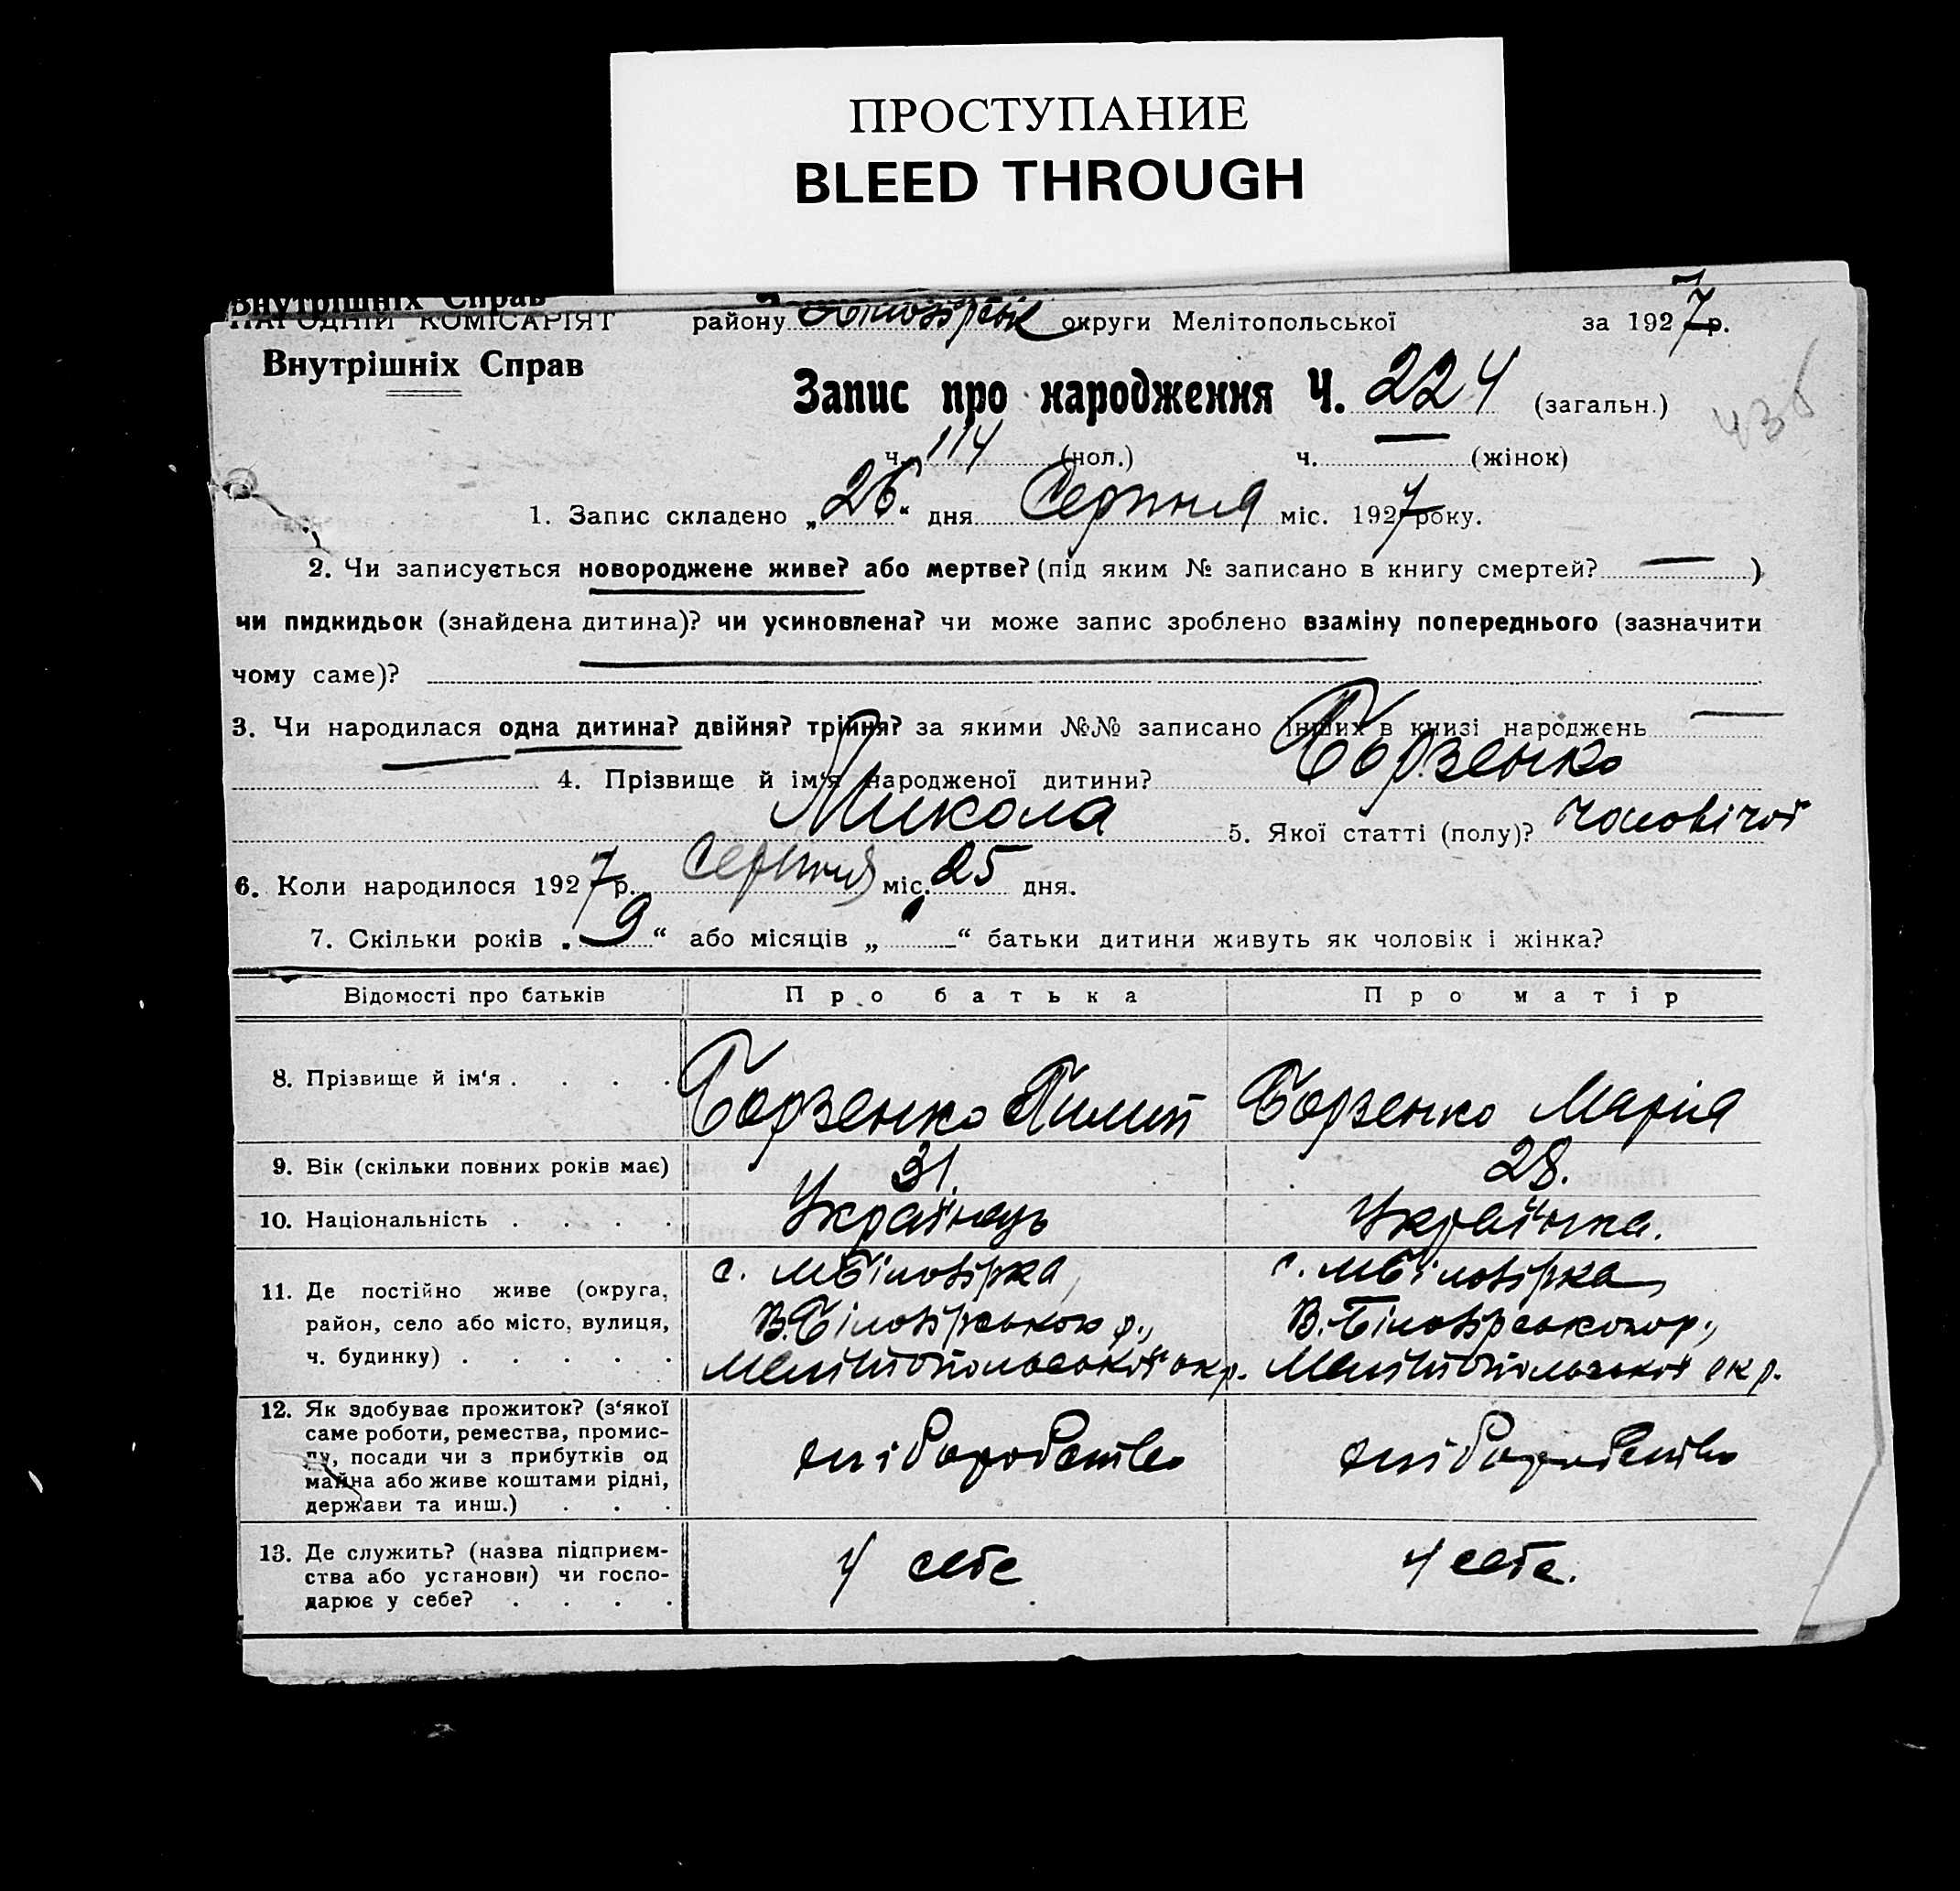 ПРОСТУПАНИЕ
BLEED THROUGH
Внутрішніх Справ
НАРОДНІЙ КОМІСАРІЯТ району округи Мелітопольської за 1927р.
Внутрішніх Справ
Запис про народження Ч. 224 (загальн.)
ч. 114 (чол.) ч. — (жінок)
1. Запис складено „26“ дня Серпня міс. 1927 року.
2. Чи записується новороджене живе? або мертве? (під яким № записано в книгу смертей? — )
чи пидкидьок (знайдена дитина)? чи усиновлена? чи може запис зроблено взаміну попереднього (зазначити
чому саме)?
3. Чи народилася одна дитина? двійня? трійня? за якими №№ записано інших в книзі народжень —
4. Прізвище й ім‘я народженої дитини? Борзенко
Микола 5. Якої статті (полу)? чоловічої
6. Коли народилося 1927 р. Серпня міс. 25 дня.
7. Скільки років „9“ або місяців „ “ батьки дитини живуть як чоловік і жінка?
Відомості про батьків Про батька Про матір
8. Прізвище й ім‘я . . . . Борзенко Пилип Борзенко Марія
9. Вік (скільки повних років має) 31. 28.
10. Національність . . . . Українець Українка.
11. Де постійно живе (округа, с. М Білозірка, с. М Білозірка,
район, село або місто, вулиця, В. Білозірського р., В. Білозірського р.,
ч. будинку) . . . . . Мелітопольської окр. Мелітопольської окр.
12. Як здобуває прожиток? (з‘якої
саме роботи, ремества, промис-
лу, посади чи з прибутків од хліборобство хліборобство
майна або живе коштами рідні,
держави та инш.) . . .
13. Де служить? (назва підприєм-
ства або установи) чи госпо- у себе у себе.
дарює у себе? . . . .